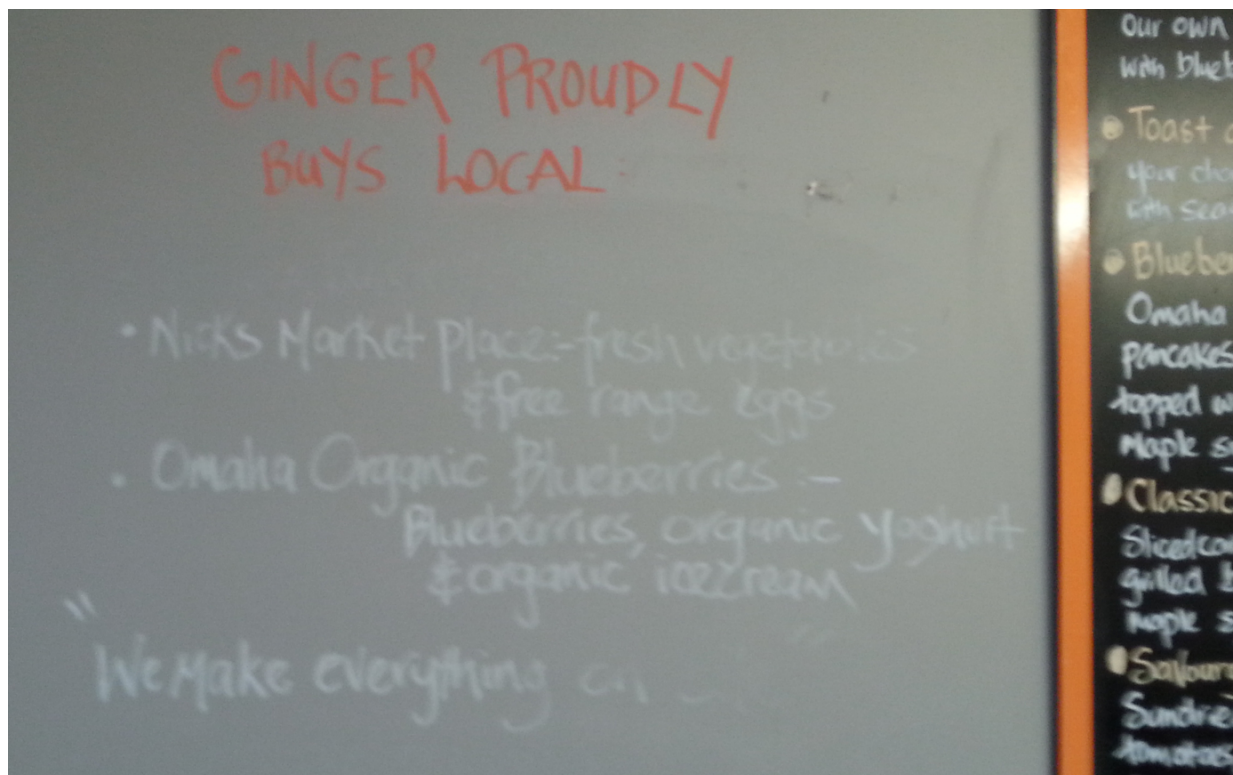 GINGER PROUDLY
BUYS LOCAL
• Nicks Market Place:- fresh vegetables
& free range eggs
• Omaha Organic Blueberries :-
Blueberries, organic yoghurt
& organic icecream
"We Make everything on "
Our own
with blueb
Toast
your cho
with seas
Blueber
Omaha
pancakes
topped w
Maple s
Classic
Sliced
grilled b
Maple s
Savour
Sundrie
tomatoes